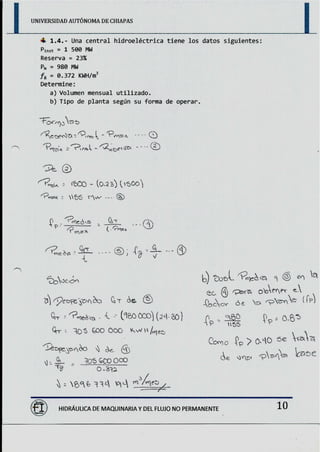 UNIVERSIDAD AUTÓNOMA DE CHIAPAS
1.4.- Una central hidroeléctrica tiene los datos siguientes:
Pinst = 1 500 MW
Reserva = 23%
Pm = 980 MW
fg = 0.372 KWH/m³
Determine:
a) Volumen mensual utilizado.
b) Tipo de planta según su forma de operar.
Formulas
Reserva = Pinst - Pmáx ---- ①
Pmáx = Pinst - Reserva ---- ②
De ②
Pmáx = 1500 - (0.23)(1500)
Pmax = 1155 MW --- ③
fp = Pmedia / Pmax = GT / t Pmax --- ④
Pmedia = GT / t --- ⑤, fg = G / V --- ④
Solución
a) Despejando GT de ⑤
GT = Pmedia . t = (980 000)(24·30)
GT = 705 600 000 KWH/mes
Despejando V de ④
V = G / fg = 705 600 000 / 0.372
V = 1896 774 194 m³/mes
b) Sust. Pmedia y ③ en la
ec ④ para obtener el
factor de la planta (fp)
fp = 980 / 1155 fp = 0.85
Como fp > 0.40 se trata
de una planta base
HIDRÁULICA DE MAQUINARIA Y DEL FLUJO NO PERMANENTE
10